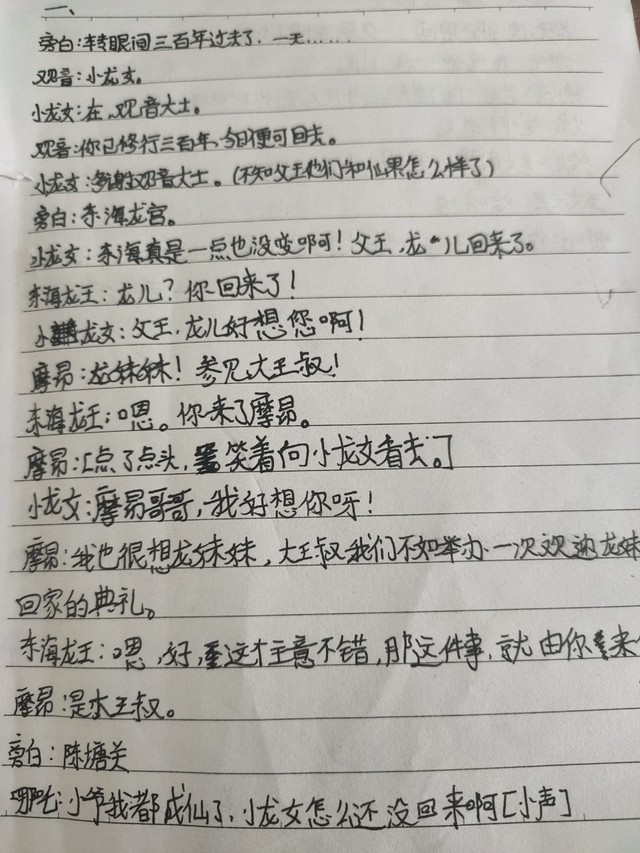 一、
旁白:转眼间三百年过去了,一天……
观音:小龙女。
小龙女:在,观音大士。
观音:你已修行三百年,今日便可回去。
小龙女:多谢观音大士。(不知父王他们和仙果怎么样了)
旁白:东海龙宫。
小龙女:东海真是一点也没变啊!父王,龙儿回来了。
东海龙王:龙儿?你回来了!
小龙女:父王,龙儿好想您啊!
摩昂:龙妹妹!参见大王叔!
东海龙王:嗯。你来了摩昂。
摩昂:[点了点头,笑着向小龙女看去。]
小龙女:摩昂哥哥,我好想你呀!
摩昂:我也很想龙妹妹,大王叔我们不如举办一次欢迎龙妹
回家的典礼。
东海龙王:嗯,好,这个主意不错,那这件事,就由你来
摩昂:是大王叔。
旁白:陈塘关
哪吒:小爷我都成仙了,小龙女怎么还没回来啊[小声]